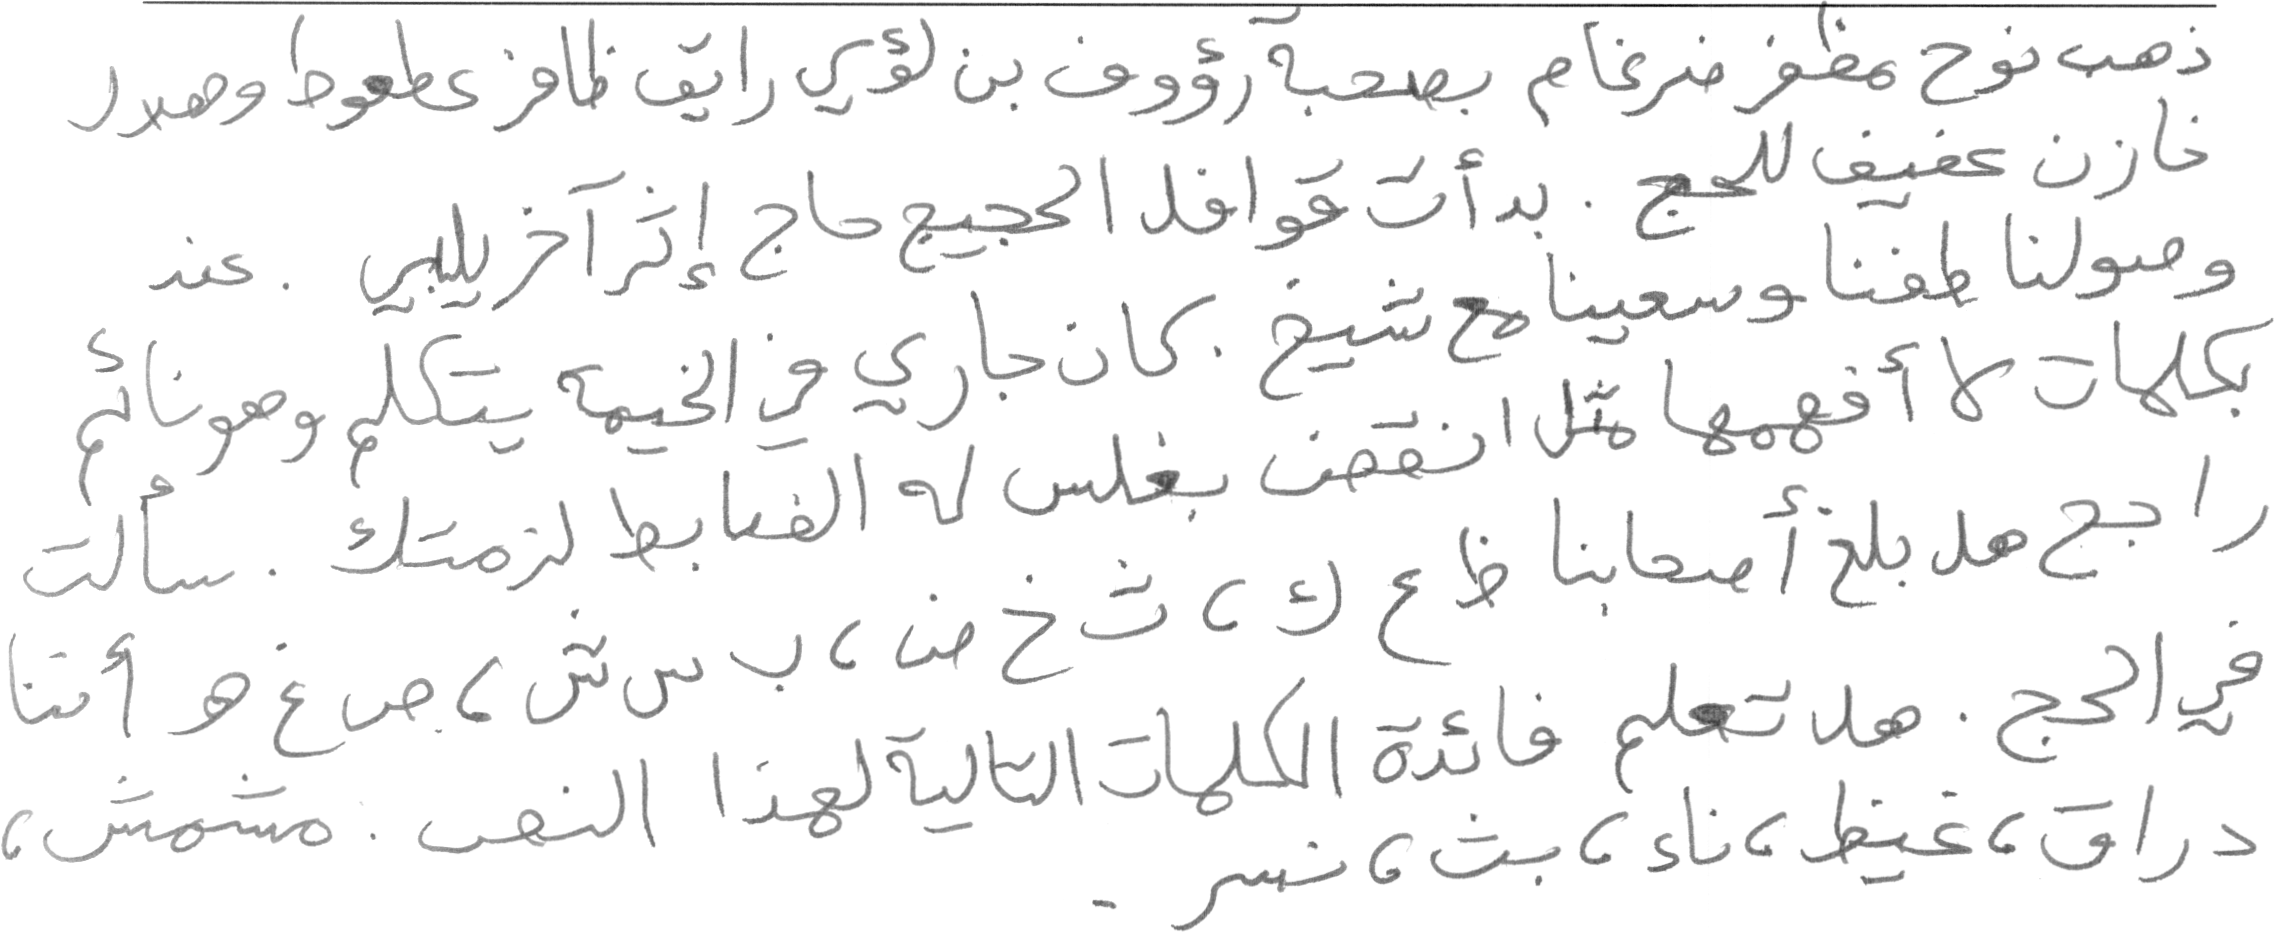 ذهب نوح مظفر ضرغام بصحبة رؤوف بن لؤي رايق ظافر عطعوط وهدر
خازن عفيف للحج . بدأت قوافل الحجيج حاج إثر آخر يلبي . عند
وصولنا طفنا وسعينا مع شيخ . كان جاري في الخيمة يتكلم وهو نائم
بكلمات لا أفهمها مثل انقض بغلس له الضابط لزمتك . سألت
راجح هل بلغ أصحابنا ظ ع ك ، ث خ ض ، ب س ش ، ص غ هو أمتنا
في الحج . هل تعلم فائدة الكلمات التالية لهذا النص : مشمش ،
دراق ، غيظ ، ناء ، بث ، نسر .